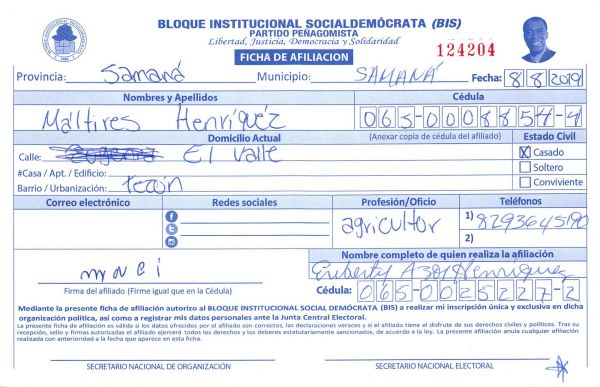 BLOQUE INSTITUCIONAL SOCIALDEMÓCRATA (BIS)
PARTIDO PEÑAGOMISTA
Libertad, Justicia, Democracia y Solidaridad
124204
FICHA DE AFILIACION
Provincia: Samaná Municipio: SAMANÁ Fecha: 8/8/2019
Nombres y Apellidos Cédula
Maltires Henríquez 065-0008854-4
(Anexar copia de cédula del afiliado)
Domicilio Actual Estado Civil
Calle: El Valle X Casado
#Casa / Apt. / Edificio: Soltero
Barrio / Urbanización: Tezón Conviviente
Correo electrónico Redes sociales Profesión/Oficio Teléfonos
agricultor 1) 8293645190
2)
Nombre completo de quien realiza la afiliación
Henríquez
Firma del afiliado (Firme igual que en la Cédula) Cédula: 065-0025227-2
Mediante la presente ficha de afiliación autorizo al BLOQUE INSTITUCIONAL SOCIAL DEMÓCRATA (BIS) a realizar mi inscripción única y exclusiva en dicha
organización política, así como a registrar mis datos personales ante la Junta Central Electoral.
La presente ficha de afiliación es válida si los datos ofrecidos por el afiliado son correctos, las declaraciones veraces y si el afiliado tiene el disfrute de sus derechos civiles y políticos. Tras su
recepción, sello y firmas autorizadas el afiliado ejercerá todos los derechos y los deberes estatutariamente sancionados, de acuerdo a la ley. La presente afiliación anula cualquier afiliación
realizada con anterioridad a la fecha que aparece en esta ficha.
SECRETARIO NACIONAL DE ORGANIZACIÓN SECRETARIO NACIONAL ELECTORAL